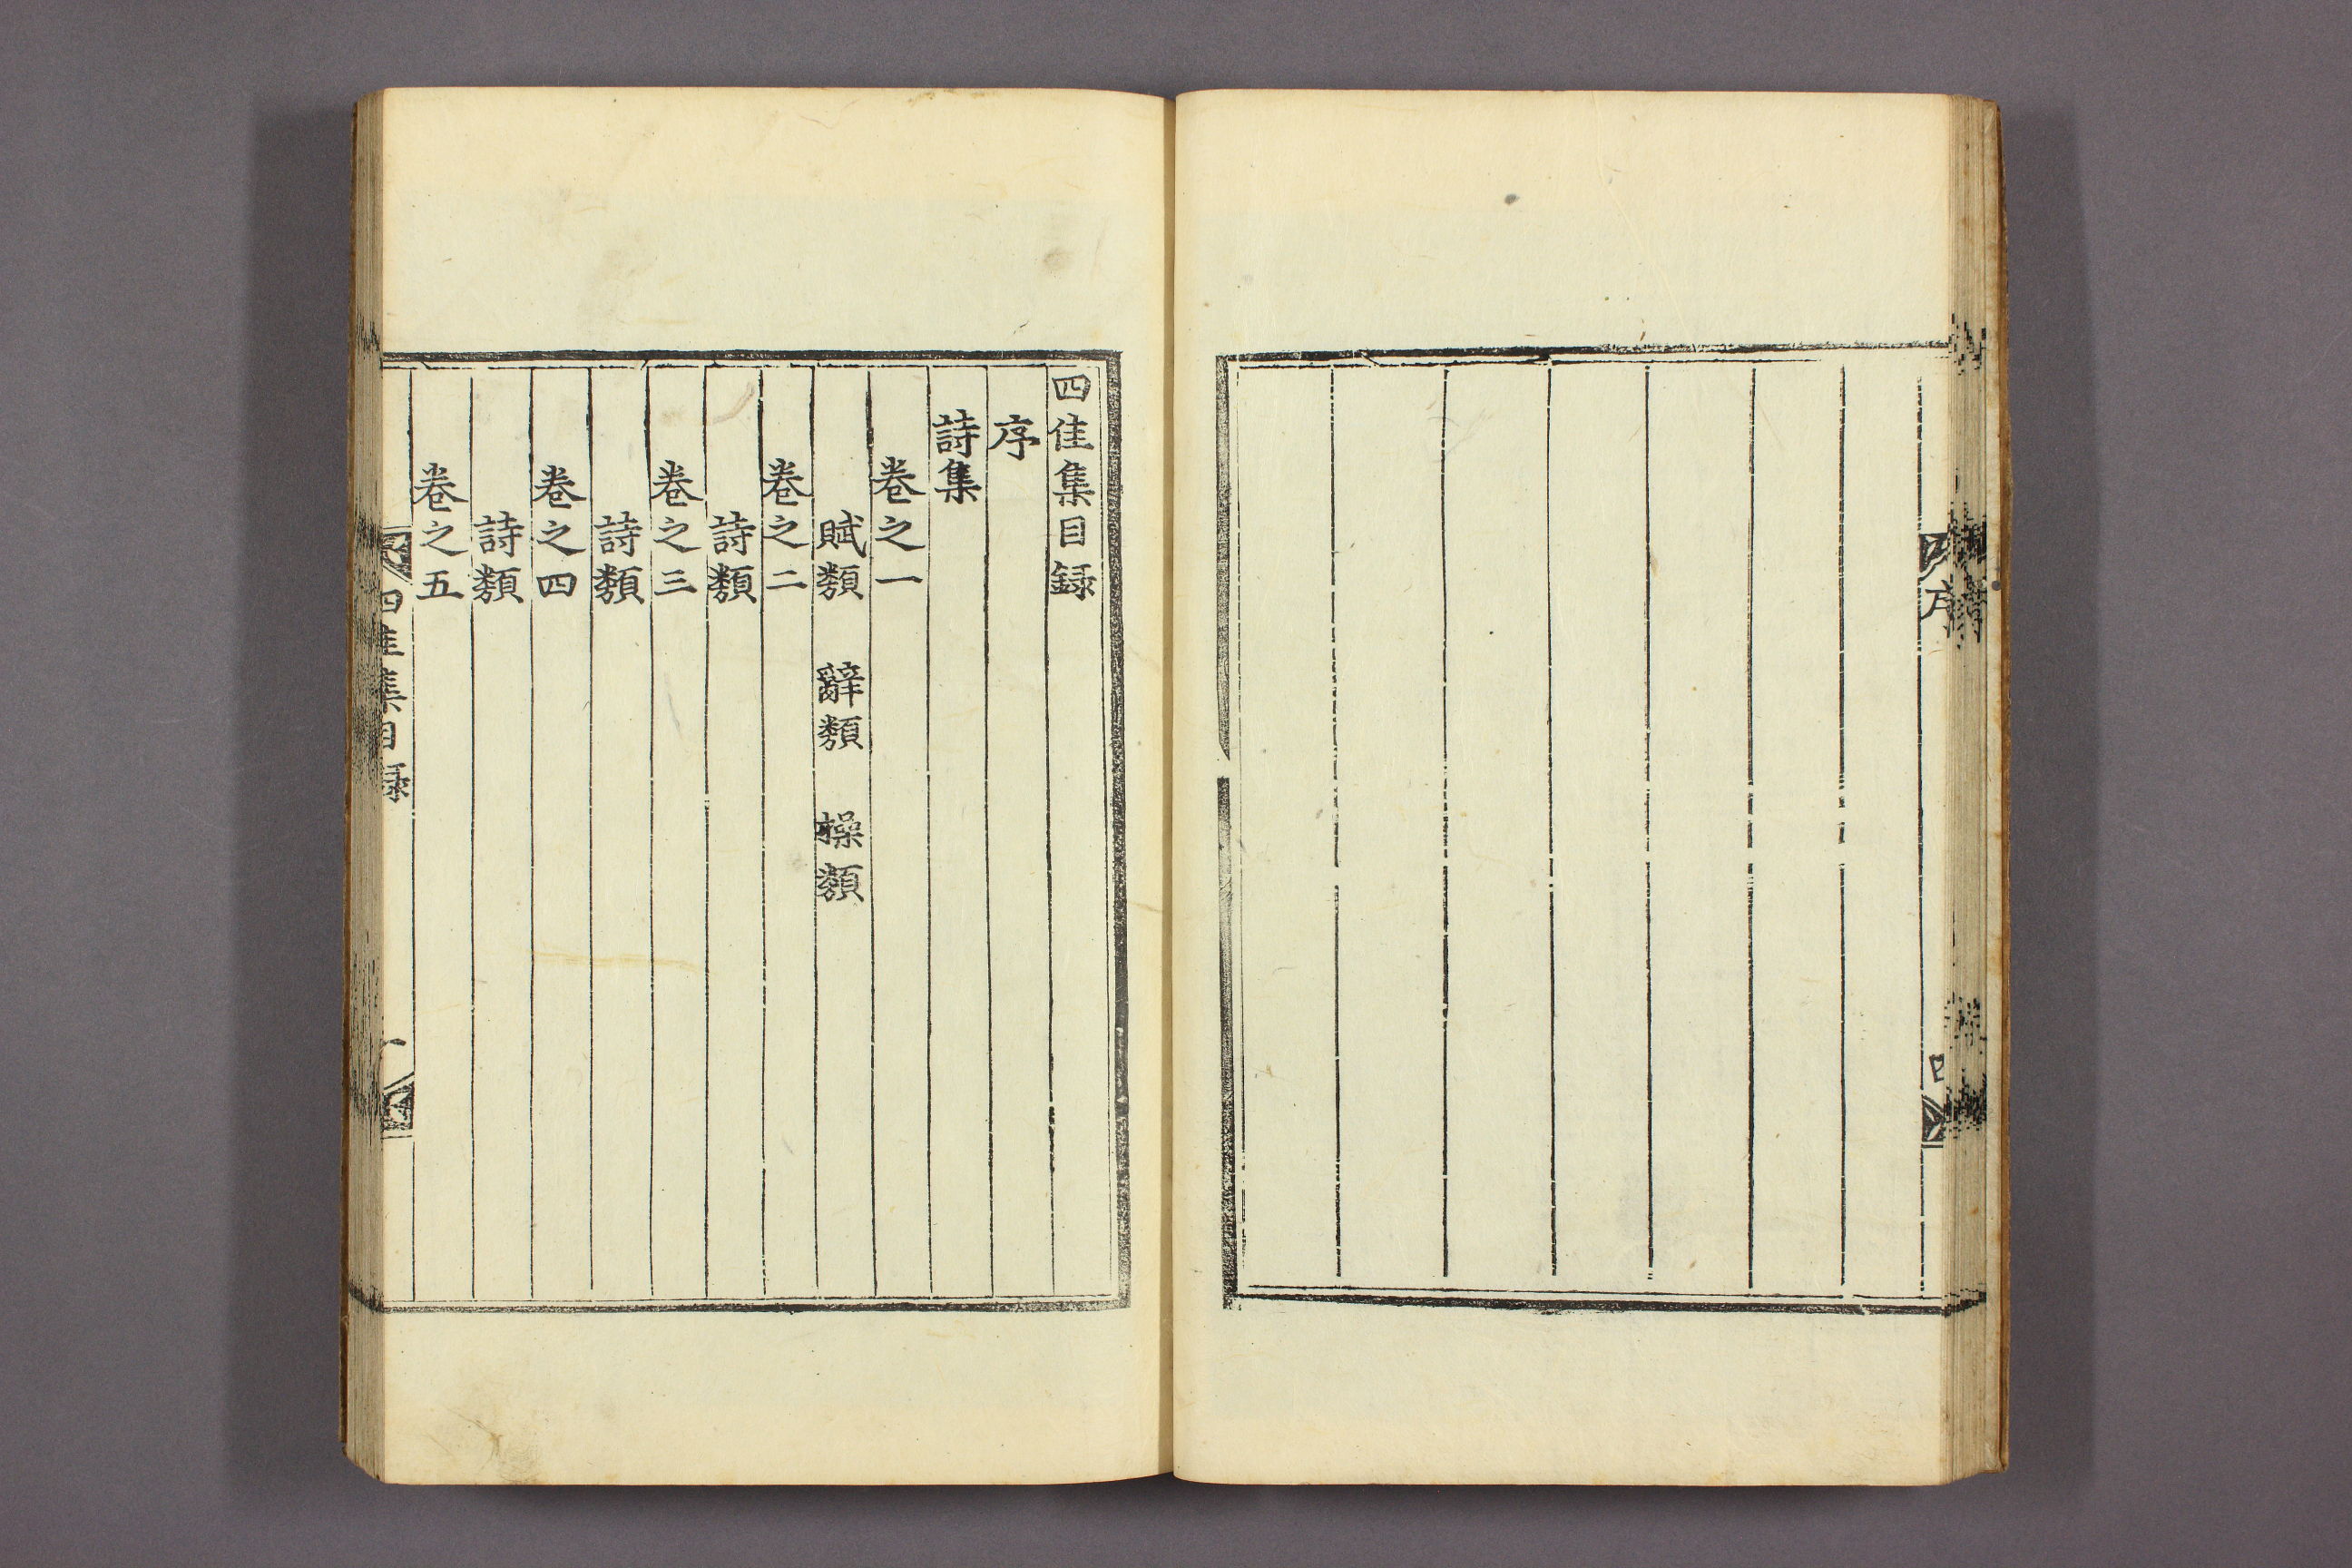 序
四
四佳集目録
序
詩集
卷之一
賦類　辭類　操類
卷之二
詩類
卷之三
詩類
卷之四
詩類
卷之五
四佳集目録
一